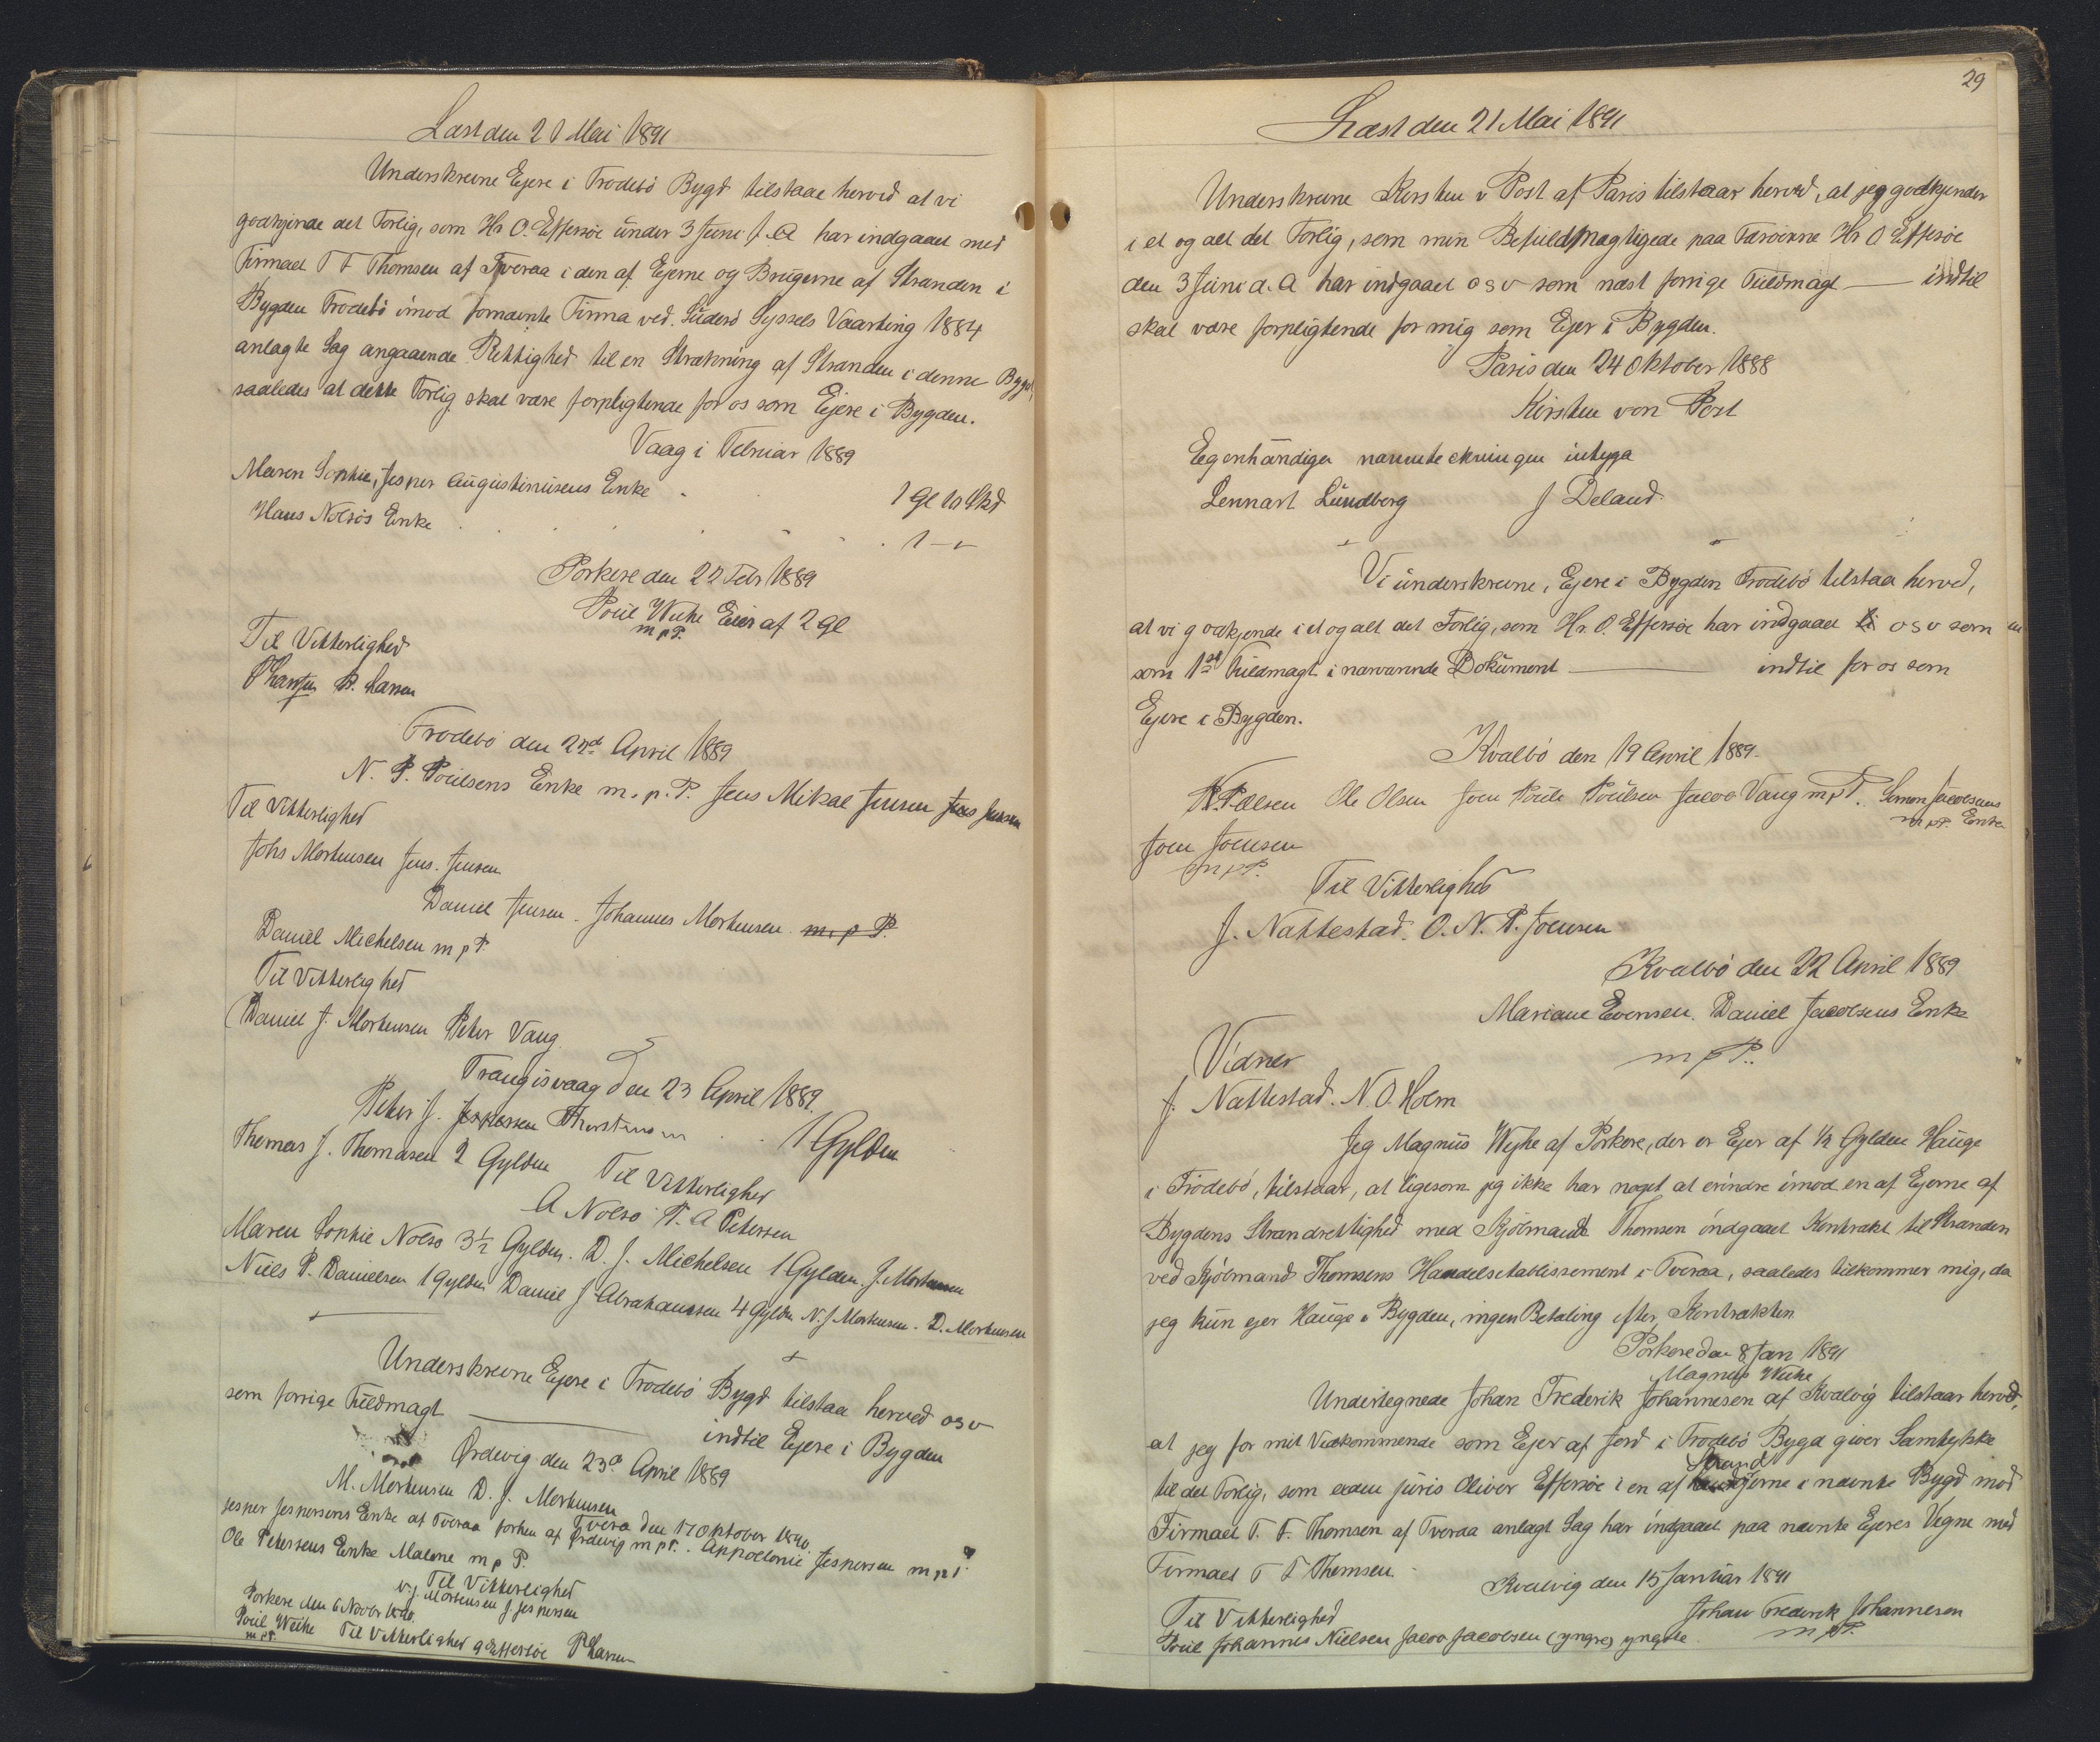 Læst den 21 Mai 1891
Underskrevne Ejere i Frodebö Bygd tilstaae herved at vi
godkjende det Forlig, som Hr O. Effersöe under 3 Juni f. A har indgaaet med
Firmaet T F Thomsen af Tveraa i den af Ejerne og Brugerne af Stranden i
Bygden Frodebö imod fornævnte Firma ved Suderö Syssels Vaarting 1884
anlagte Sag angaaende Rettighed til en Strækning af Stranden i denne Bygd,
saaledes at dette Forlig skal være forpligtende for os som Ejere i Bygden.
Vaag i Februar 1889
Maren Sophie, Jesper Augustinusens Enke . 1 Gl 10 Skd
Hans Nolsös Enke . . . . 1 – "
Porkere den 22 Febr 1889
Poul Weihe Eier af 2 Gl
m p P.
Til Vitterlighed
P. Larsen
Frodebö den 22d April 1889
N. P. Poulsens Enke m. p. P. Jens Mikal Jensen Jens Jensen
Til Vitterlighed
Johs Mortensen Jens. Jensen
Daniel Jensen. Johannes Mortensen. m. p P.
Daniel Michelsen m p P.
Til Vitterlighed
Daniel J. Mortensen Peter Vang.
Trangisvaag den 23 April 1889.
Peter J. Jespersen . . 1 Gylden
Thomas J. Thomasen 2 Gylden Til Vitterlighed
A Nolsö P. A Petersen
Maren Sophie Nolsö 3½ Gylden. D. J. Michelsen 1 Gylden. J. Mortensen
Niels P. Danielsen 1 Gylden Daniel J Abrahamsen 4 Gylden N. J Mortensen. D. Mortensen
Underskrevne Ejere i Frodebö Bygd tilstaa herved osv
som forrige Fuldmagt ——— indtil Ejere i Bygden
Ørdevig den 23d April 1889
M. Mortensen D. J. Mortensen
Tverå den 17 Oktober 1890.
Jesper Jespersens Enke af Tveraa forhen af Ørdevig m p P. Appolonie Jespersen m p P
Ole Petersens Enke Malene m p P.
Til Vitterlighed
V. J. Mortensen J Jespersen
Porkere den 6 Novbr 1890.
Poul Weihe Til Vitterlighed G Effersöe P Larsen
m p P.
29
Læst den 21 Mai 1891
Underskrevne Kirsten v Post af Paris tilstaar herved, at jeg godkjender
i et og alt det Forlig, som min Befuldmægtigede paa Færöerne Hr O Effersöe
den 3 Juni d. A har indgaaet osv som næst forrige Fuldmagt —— indtil
skal være forpligtende for mig som Ejer i Bygden.
Paris den 24 Oktober 1888
Kirsten von Post
Egenhändiga namnteckningen intyga
Lennart Lundberg J Deland
Vi underskrevne, Ejere i Bygden Frodebö tilstaa herved,
at vi godkjende i et og alt det Forlig, som Hr. O. Effersöe har indgaaet osv som
som 1ste Fuldmagt i nærværende Dokument ——— indtil for os som
Ejere i Bygden.
Kvalbö den 19 April 1889.
Ole Olsen Joen Poule Poulsen Jacob Vang m p P. Simon Jacobsens
m p P. Enke
Joen Joensen
m p P.
Til Vitterlighed
J. Nattestad. O. N. P. Joensen
Kvalbö den 22 April 1889
Mariane Evensen. Daniel Jacobsens Enke
m p P.
Vidner
J. Nattestad. N. O. Holm
Jeg Magnus Wejhe af Porkere, der er Ejer af ½ Gylden Hauge
i Frodebö, tilstaar, at ligesom jeg ikke har noget at erindre imod en af Ejerne af
Bygdens Strandrettighed med Kjöbmand Thomsen indgaaet Kontrakt til Stranden
ved Kjöbmand Thomsens Handelsetablissement i Tveraa, saaledes tilkommer mig, da
jeg kun ejer Hauge i Bygden, ingen Betaling efter Kontrakten
Porkere den 8 Jan 1891
Magnus Weihe
Undertegnede Johan Frederik Johannesen af Kvalvig tilstaar herved,
at jeg for mit Vedkommende som Ejer af Jord i Frodebö Bygd giver Samtykke
til det Forlig, som exam juris Oliver Effersöe i en af Strandejerne i nævnte Bygd mod
Firmaet T. F. Thomsen af Tveraa anlagt Sag har indgaaet paa nævnte Ejeres Vegne med
Firmaet T F Thomsen.
Kvalvig den 15 Januar 1891
Johan Frederik Johannesen
m p P.
Til Vitterlighed
Poul Johannes Nielsen Jacob Jacobsen (yngre) yngste